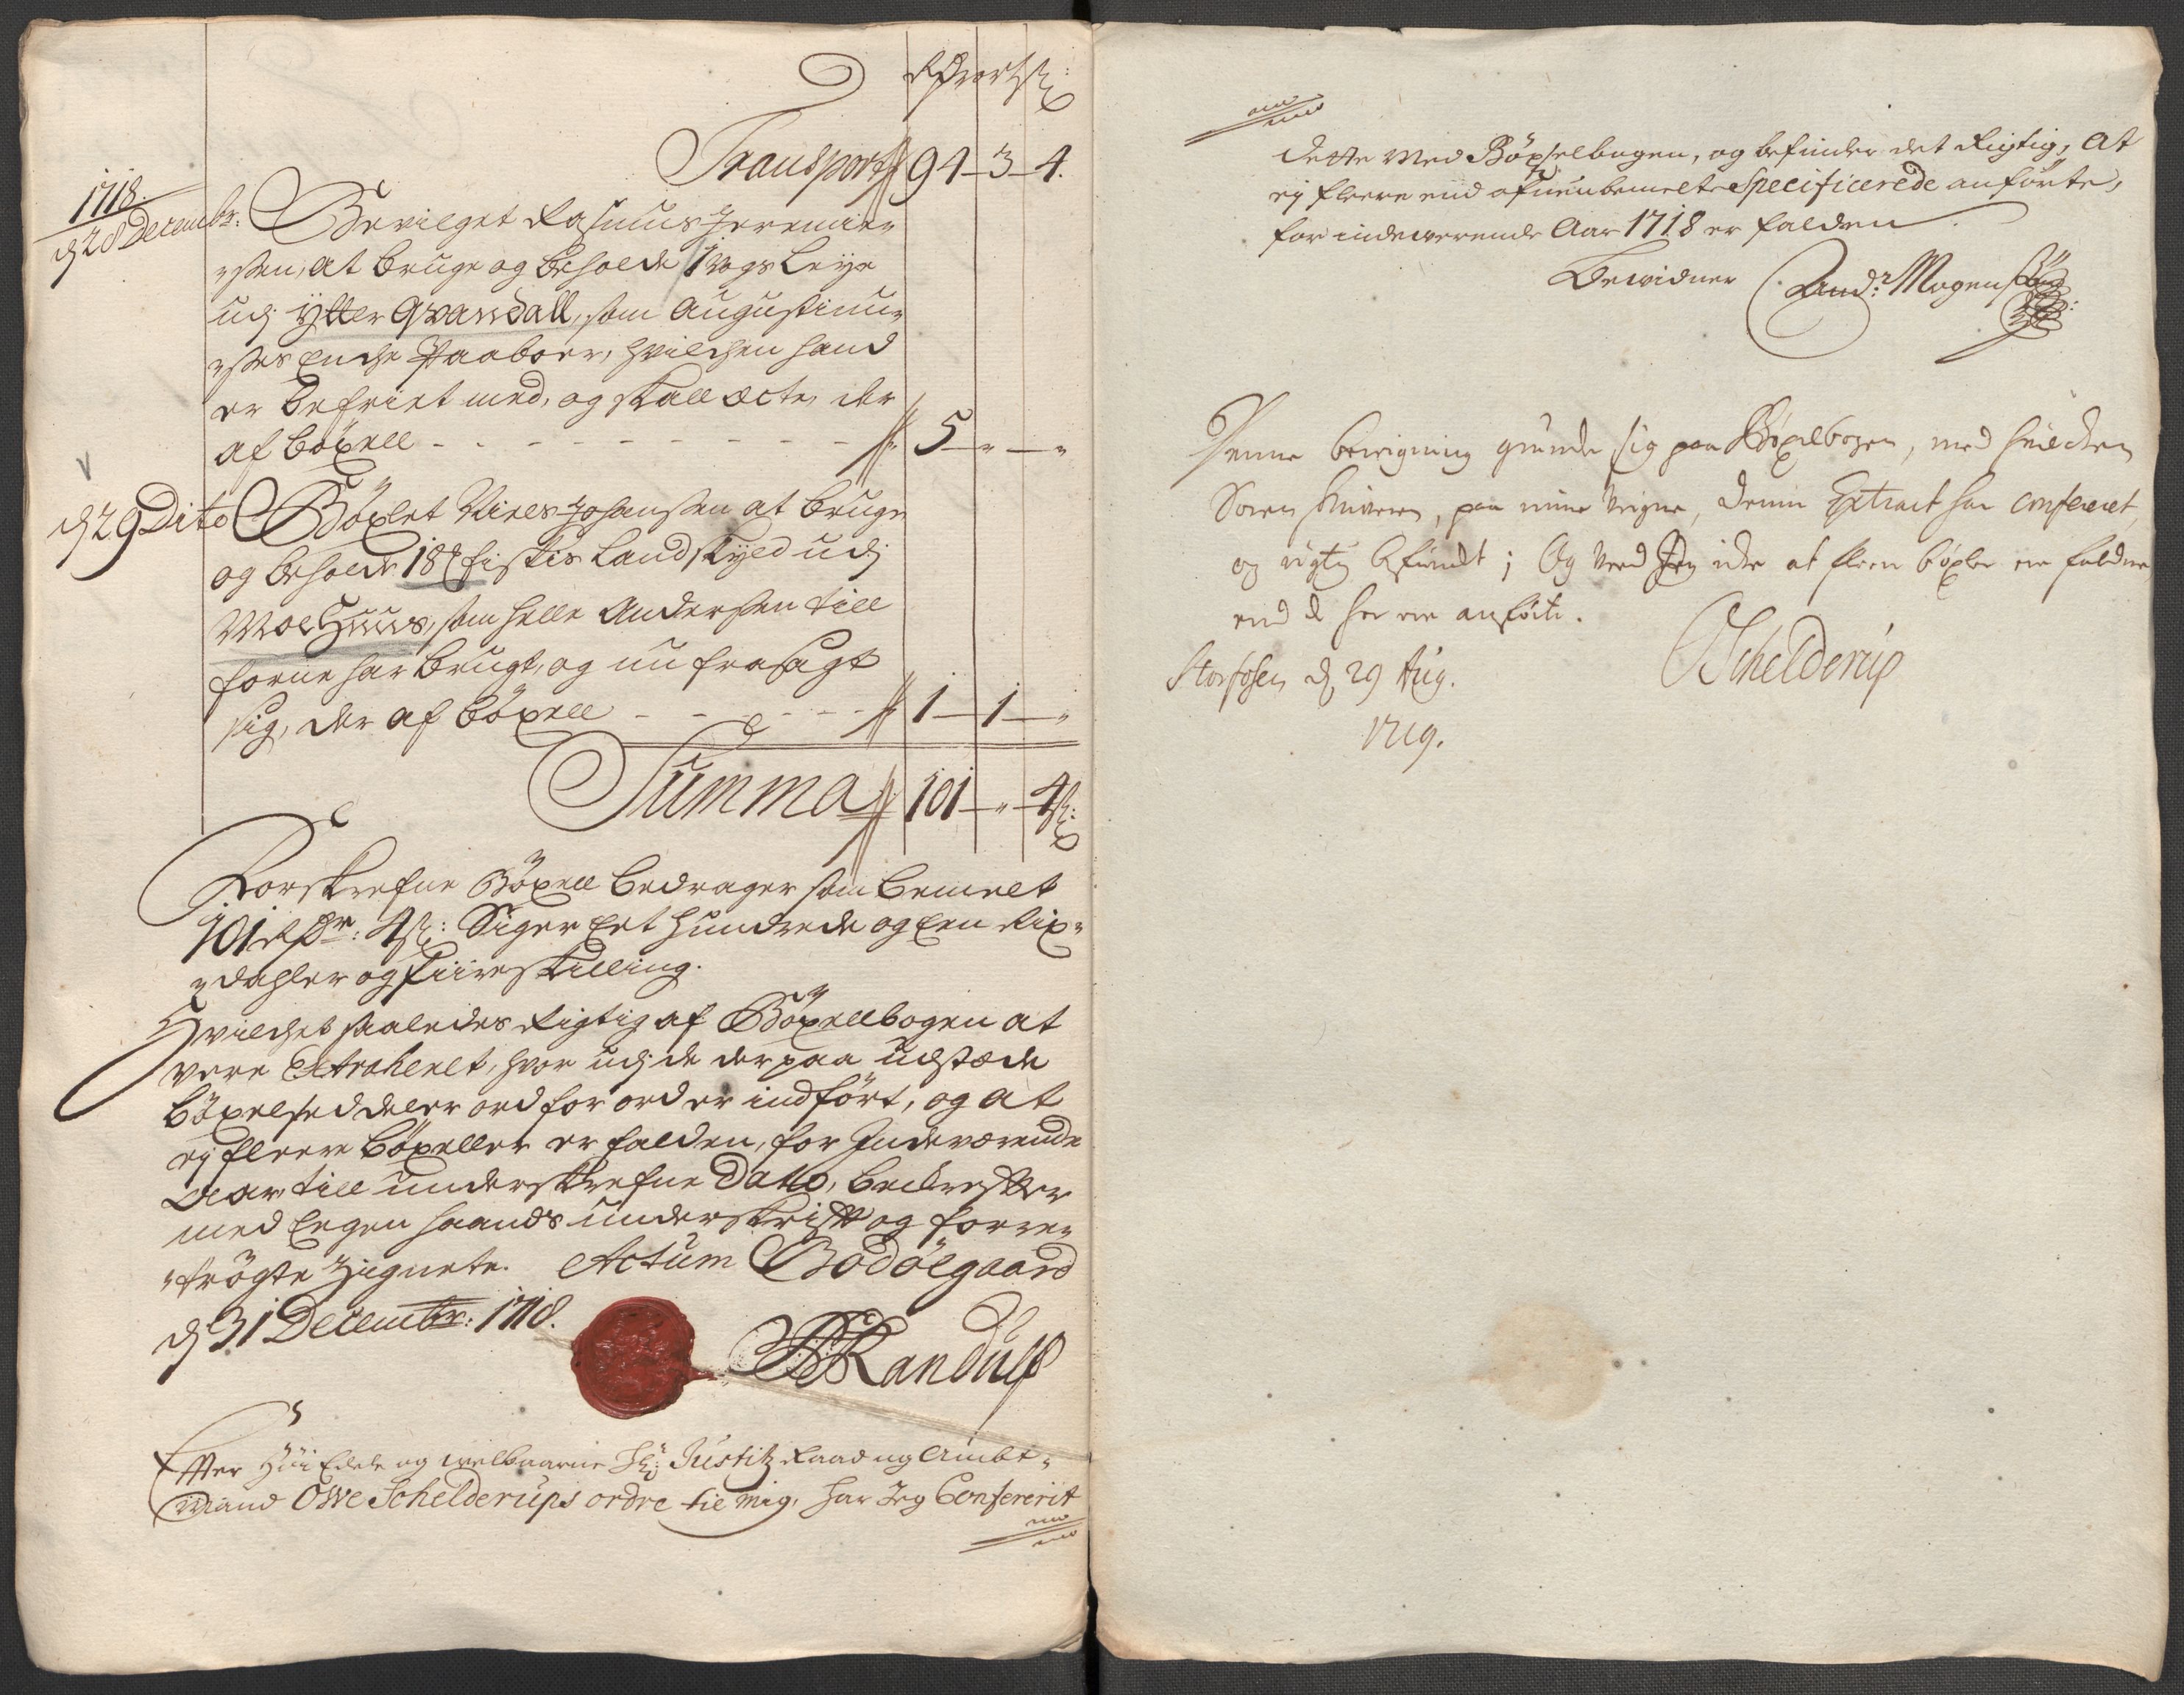 Rdr ort ſs:
Transport 94 - 3 - 4.
1718.
d 28 Decembr: Bevilget Rasmus Jeremie,,
,,sen, at bruge og beholde 1 vogs Leye
udj Ytter Qvandall, som Augustinu,,
,,ses Enche Paaboer, hvilchen hand
er befriet med, og skall ecte, der
af böxell - - - - - 5 - " - "
d 29 Dito Böxlet Niels Johansen at bruge
og beholde 18 fiskis Landskyld udj
Moehuus, som Helle Andersen till
forne har brugt, og nu frasagt
sig, der af böxell - - - - 1 - 1 - "
Summa 101 - " - 4 ſs:
Forskrefne Böxell bedrager som bemelt
101 Rdr: 4 ſs: Siger Eet hundrede og Een Rix,,
,,dahler og fiire skilling.
Hvilchet saaledes Rigtig af Böxellbogen at
vere Extraheret, hvor udj de der paa udstæde
böxelseddeler ord for ord er indfört, og at
ej fleere böxeller er falden, for Indeværende
Aar till underskrefne Dato, bekrefter
med Eegen haands underskrift og forre,,
,,trögte Zignete. Actum Bodöegaard
d 31 Decembr: 1718.
Randulf
Effter HöiEdele og velbaarne Hr Justitz Raad og Ambt,,
Mand Owe Schelderups ordre til mig, har Jeg Confererit
dette med Böxselbogen, og befinder det Rigtig, At
ej fleere end ofuenbemelte Specificerede anförte,
for indeværende Aar 1718 er falden
Testerer And: Mogensen
Denne beregning grunder sig paa Böxelbogen, med hvilchen
Soren skriveren, paa mine vegne, denne Extract har confereret,
og rigtig befundet; Og veed Jeg icke at fleere böxler ere faldne
end de her ere anförte.
Storfosen d 29 Aug.
1719.
Schelderup